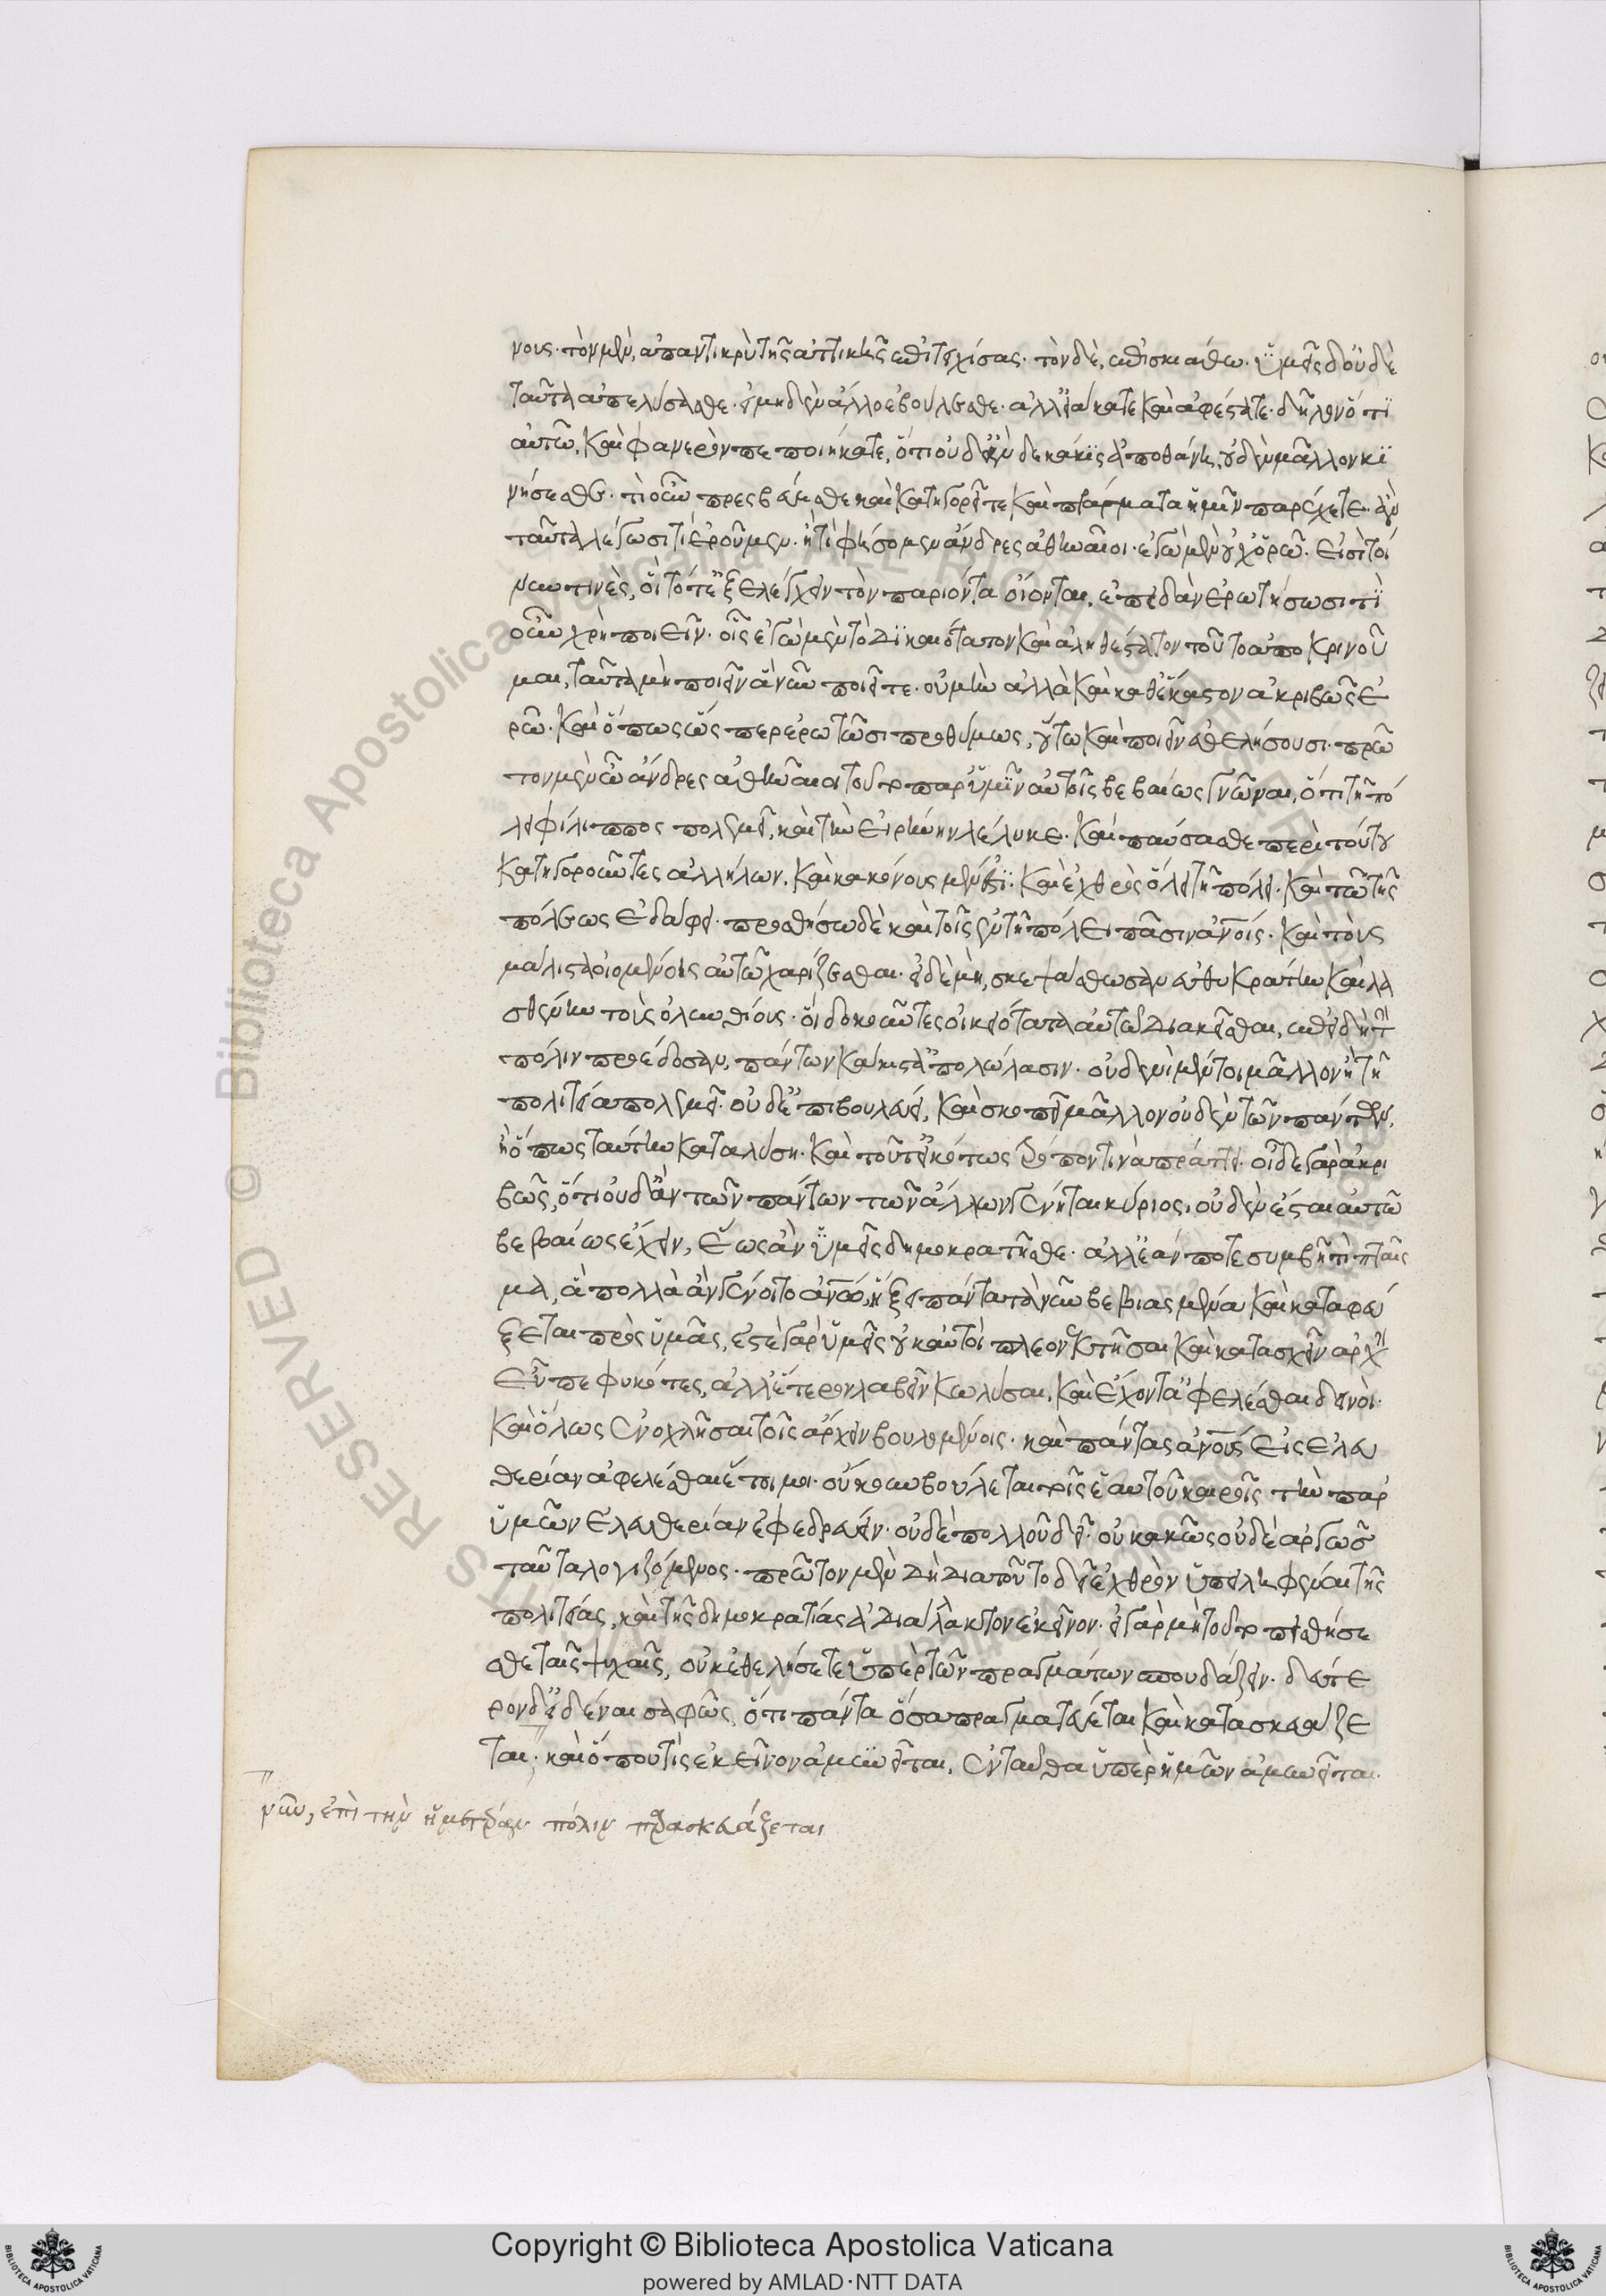 νους· τὸν μὲν, ἀπαντικρὺ τῆς ἀττικῆς ἐπιτειχίσας· τὸν δὲ, ἐπὶ σκιάθω· ὑμεῖς δ' οὐδὲ
ταῦτα ἀπελύσασθε· εἰ μηδὲν ἄλλο ἐβούλεσθε· ἀλλ' εἰάκατε καὶ ἀφέστατε· δηλονότι
αὐτῶ, καὶ φανερὸν πεποιήκατε, ὅτι οὐδ' ἂν δεκάκις ἀποθάνη, οὐδὲν μᾶλλον κι
νήσεσθε· τί οὖν πρεσβεύεσθε καὶ κατηγορεῖτε καὶ πράγματα ἡμῖν παρέχετε· ἂν
ταῦτα λέγωσι τί ἐροῦμεν· ἢ τί φήσομεν ἄνδρες ἀθηναῖοι· ἐγὼ μὲν οὐχ ὁρῶ· εἰσὶ τοί
νυν τινὲς, οἳ τότ' ἐξελέγχειν τὸν παριόντα οἴονται, ἐπειδὰν ἐρωτήσωσι τί
οὖν χρὴ ποιεῖν· οἷς ἐγὼ μὲν τὸ δικαιότατον καὶ ἀληθέστατον τοῦτο ἀποκρινοῦ
μαι, ταῦτα μὴ ποιεῖν ἃ νῦν ποιεῖτε· οὐ μὴν ἀλλὰ καὶ καθ' ἕκαστον ἀκριβῶς ἐ
ρῶ· καὶ ὅπως ὥσπερ ἐρωτῶσι προθύμως, οὕτω καὶ ποιεῖν ἐθελήσουσι· πρῶ
τον μὲν ὦ ἄνδρες ἀθηναῖοι τοῦτο παρ' ὑμῖν αὐτοῖς βεβαίως γνῶναι, ὅτι τῆ πό
λει φίλιππος πολεμεῖ, καὶ τὴν εἰρήνην λέλυκε· καὶ παύσασθε περὶ τούτου
κατηγοροῦντες ἀλλήλων· καὶ κακόνους μέν ἐστι· καὶ ἐχθρὸς ὅλη τῆ πόλει· καὶ τῶ τῆς
πόλεως ἐδάφει· προσθήσω δὲ καὶ τοῖς ἐν τῆ πόλει πᾶσιν ἀνοις· καὶ τοῖς
μάλιστα οἰομένοις αὐτῶ χαρίζεσθαι· εἰ δὲ μὴ, σκεψάσθωσαν εὐθυκράτην καὶ λα
σθένην τοὺς ὀλυνθίους· οἳ δοκοῦντες οἰκειότατα αὐτῶ διακεῖσθαι, ἐπειδὴ τὴν
πόλιν προέδοσαν, πάντων κάκιστα ἀπολώλασιν· οὐδενὶ μέντοι μᾶλλον ἢ τῆ
πολιτεία πολεμεῖ· οὐδ' ἐπιβουλεύει, καὶ σκοπεῖ μᾶλλον οὐδὲν τῶν πάντων,
ἢ ὅπως ταύτην καταλύση· καὶ τοῦτ' εἰκότως τρόπον τινὰ πράττει· οἶδε γὰρ ἀκρι
βῶς, ὅτι οὐδ' ἂν τῶν πάντων τῶν ἄλλων γένηται κύριος, οὐδὲν ἔσται αὐτῶ
βεβαίως ἔχειν, ἕως ἂν ὑμεῖς δημοκρατῆσθε· ἀλλ' ἐάν ποτε συμβῆ τι πταῖς
μα, ἃ πολλὰ ἂν γένοιτο ἀνω, ἥξει πάντα τὰ νῦν βεβιασμένα καὶ καταφεύ
ξεται πρὸς ὑμᾶς, ἐστὲ γὰρ ὑμεῖς οὐκ αὐτοὶ πλεονεκτῆσαι καὶ κατασχεῖν ἀρχὴν
εὖ πεφυκότες, ἀλλ' ἕτερον λαβεῖν κωλῦσαι, καὶ ἔχοντα ἀφελέσθαι δεινοί·
καὶ ὅλως ἐνοχλῆσαι τοῖς ἄρχειν βουλομένοις· καὶ πάντας ἀνους εἰς ἐλευ
θερίαν ἀφελέσθαι ἕτοιμοι· οὔκουν βούλεται τοῖς ἑαυτοῦ καιροῖς τὴν παρ'
ὑμῶν ἐλευθερίαν ἐφεδρεύειν· οὐδὲ πολλοῦ δεῖ· οὐ κακῶς οὐδὲ ἀργῶς
ταῦτα λογιζόμενος· πρῶτον μὲν δὴ διὰ τοῦτο δεῖ ἐχθρὸν ὑπειληφέναι τῆς
πολιτείας, καὶ τῆς δημοκρατίας ἀδιάλλακτον ἐκεῖνον· εἰ γὰρ μὴ τοῦτο πεισθήσε
σθε ταῖς ψυχαῖς, οὐκ ἐθελήσετε ὑπὲρ τῶν πραγμάτων σπουδάζειν· δεύτε
ρον δ' εἰδέναι σαφῶς, ὅτι πάντα ὅσα πραγματεύεται καὶ κατασκευάζε
ται· καὶ ὅπου τις ἐκεῖνον ἀμυνεῖται, ἐνταῦθα ὑπὲρ ἡμῶν ἀμυνεῖται·
νῦν, ἐπὶ τὴν ἡμετέραν πόλιν παρασκευάζεται